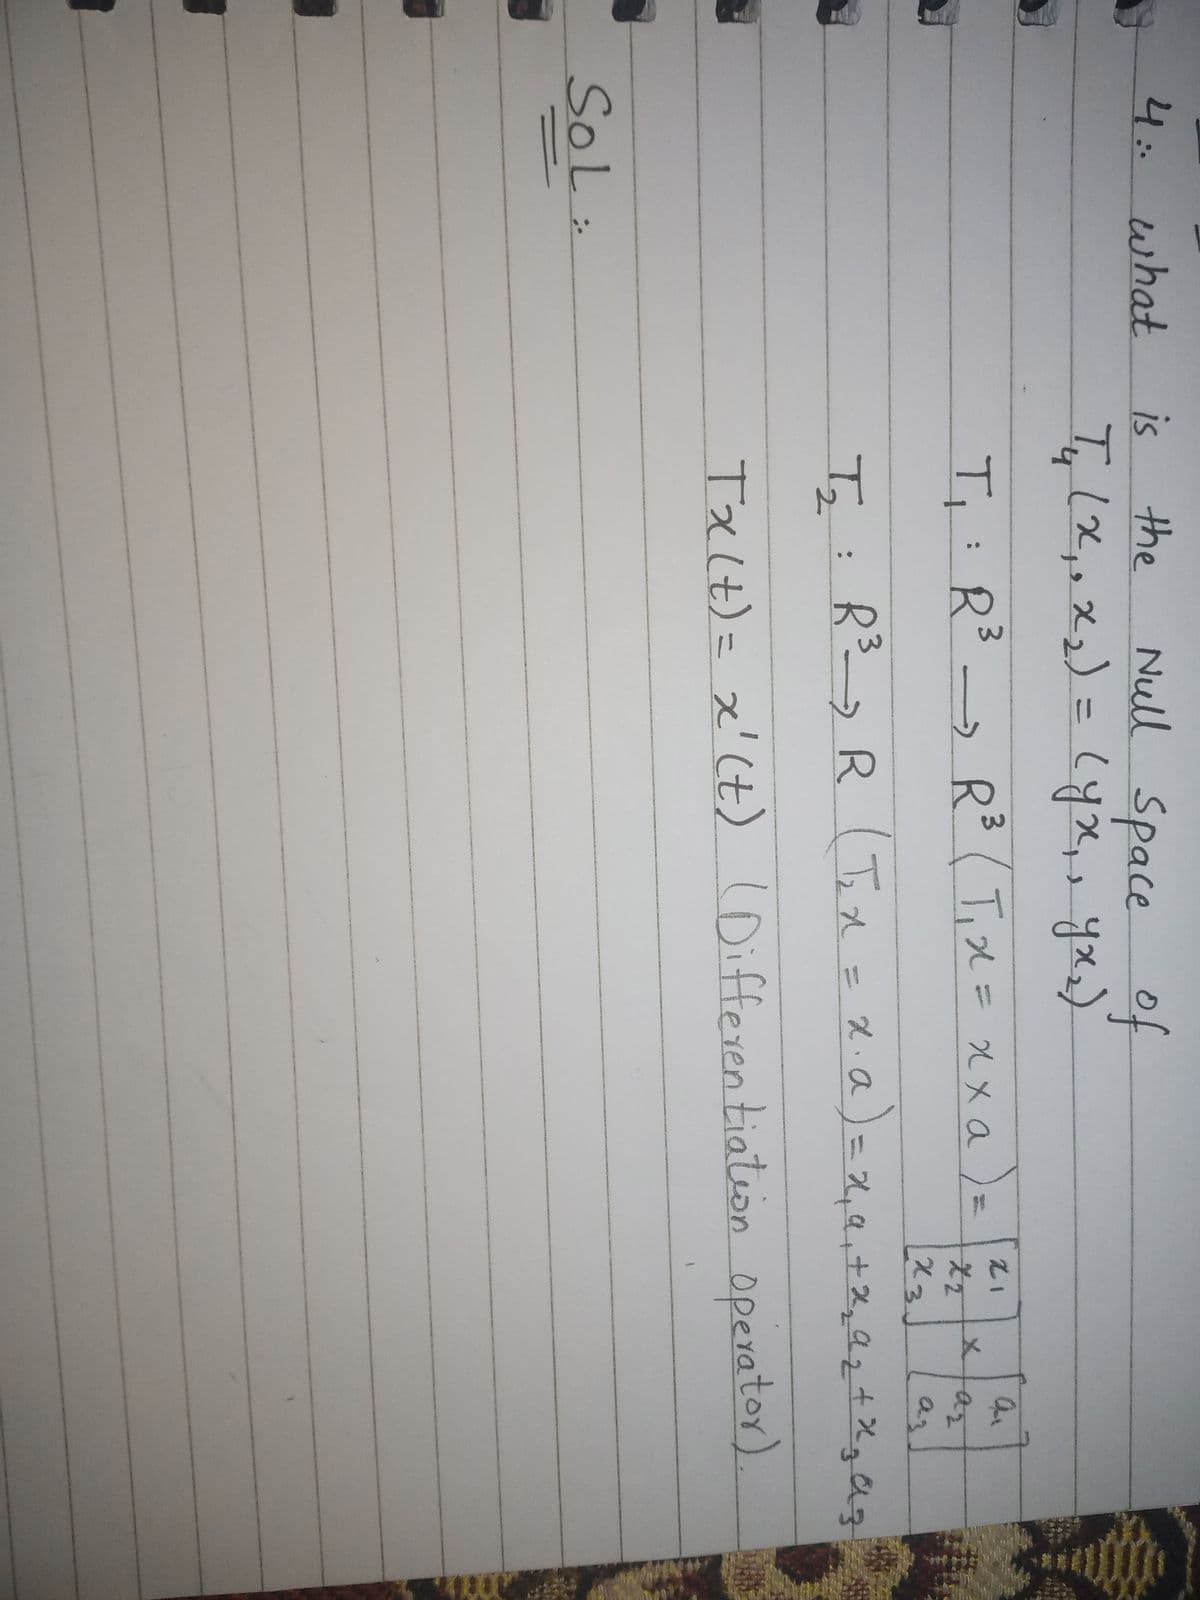 4:. what is the Null Space of
T₄(x₁, x₂) = (yx₁, yx₂)
T₁ : R³ → R³ (T₁x = x × a) = [x1 x2 x3] × [a1 a2 a3]
T₂ : R³ → R (T₂x = x.a) = x₁a₁ + x₂a₂ + x₃a₃
Tx(t) = x'(t) (Differentiation operator).
SoL :.